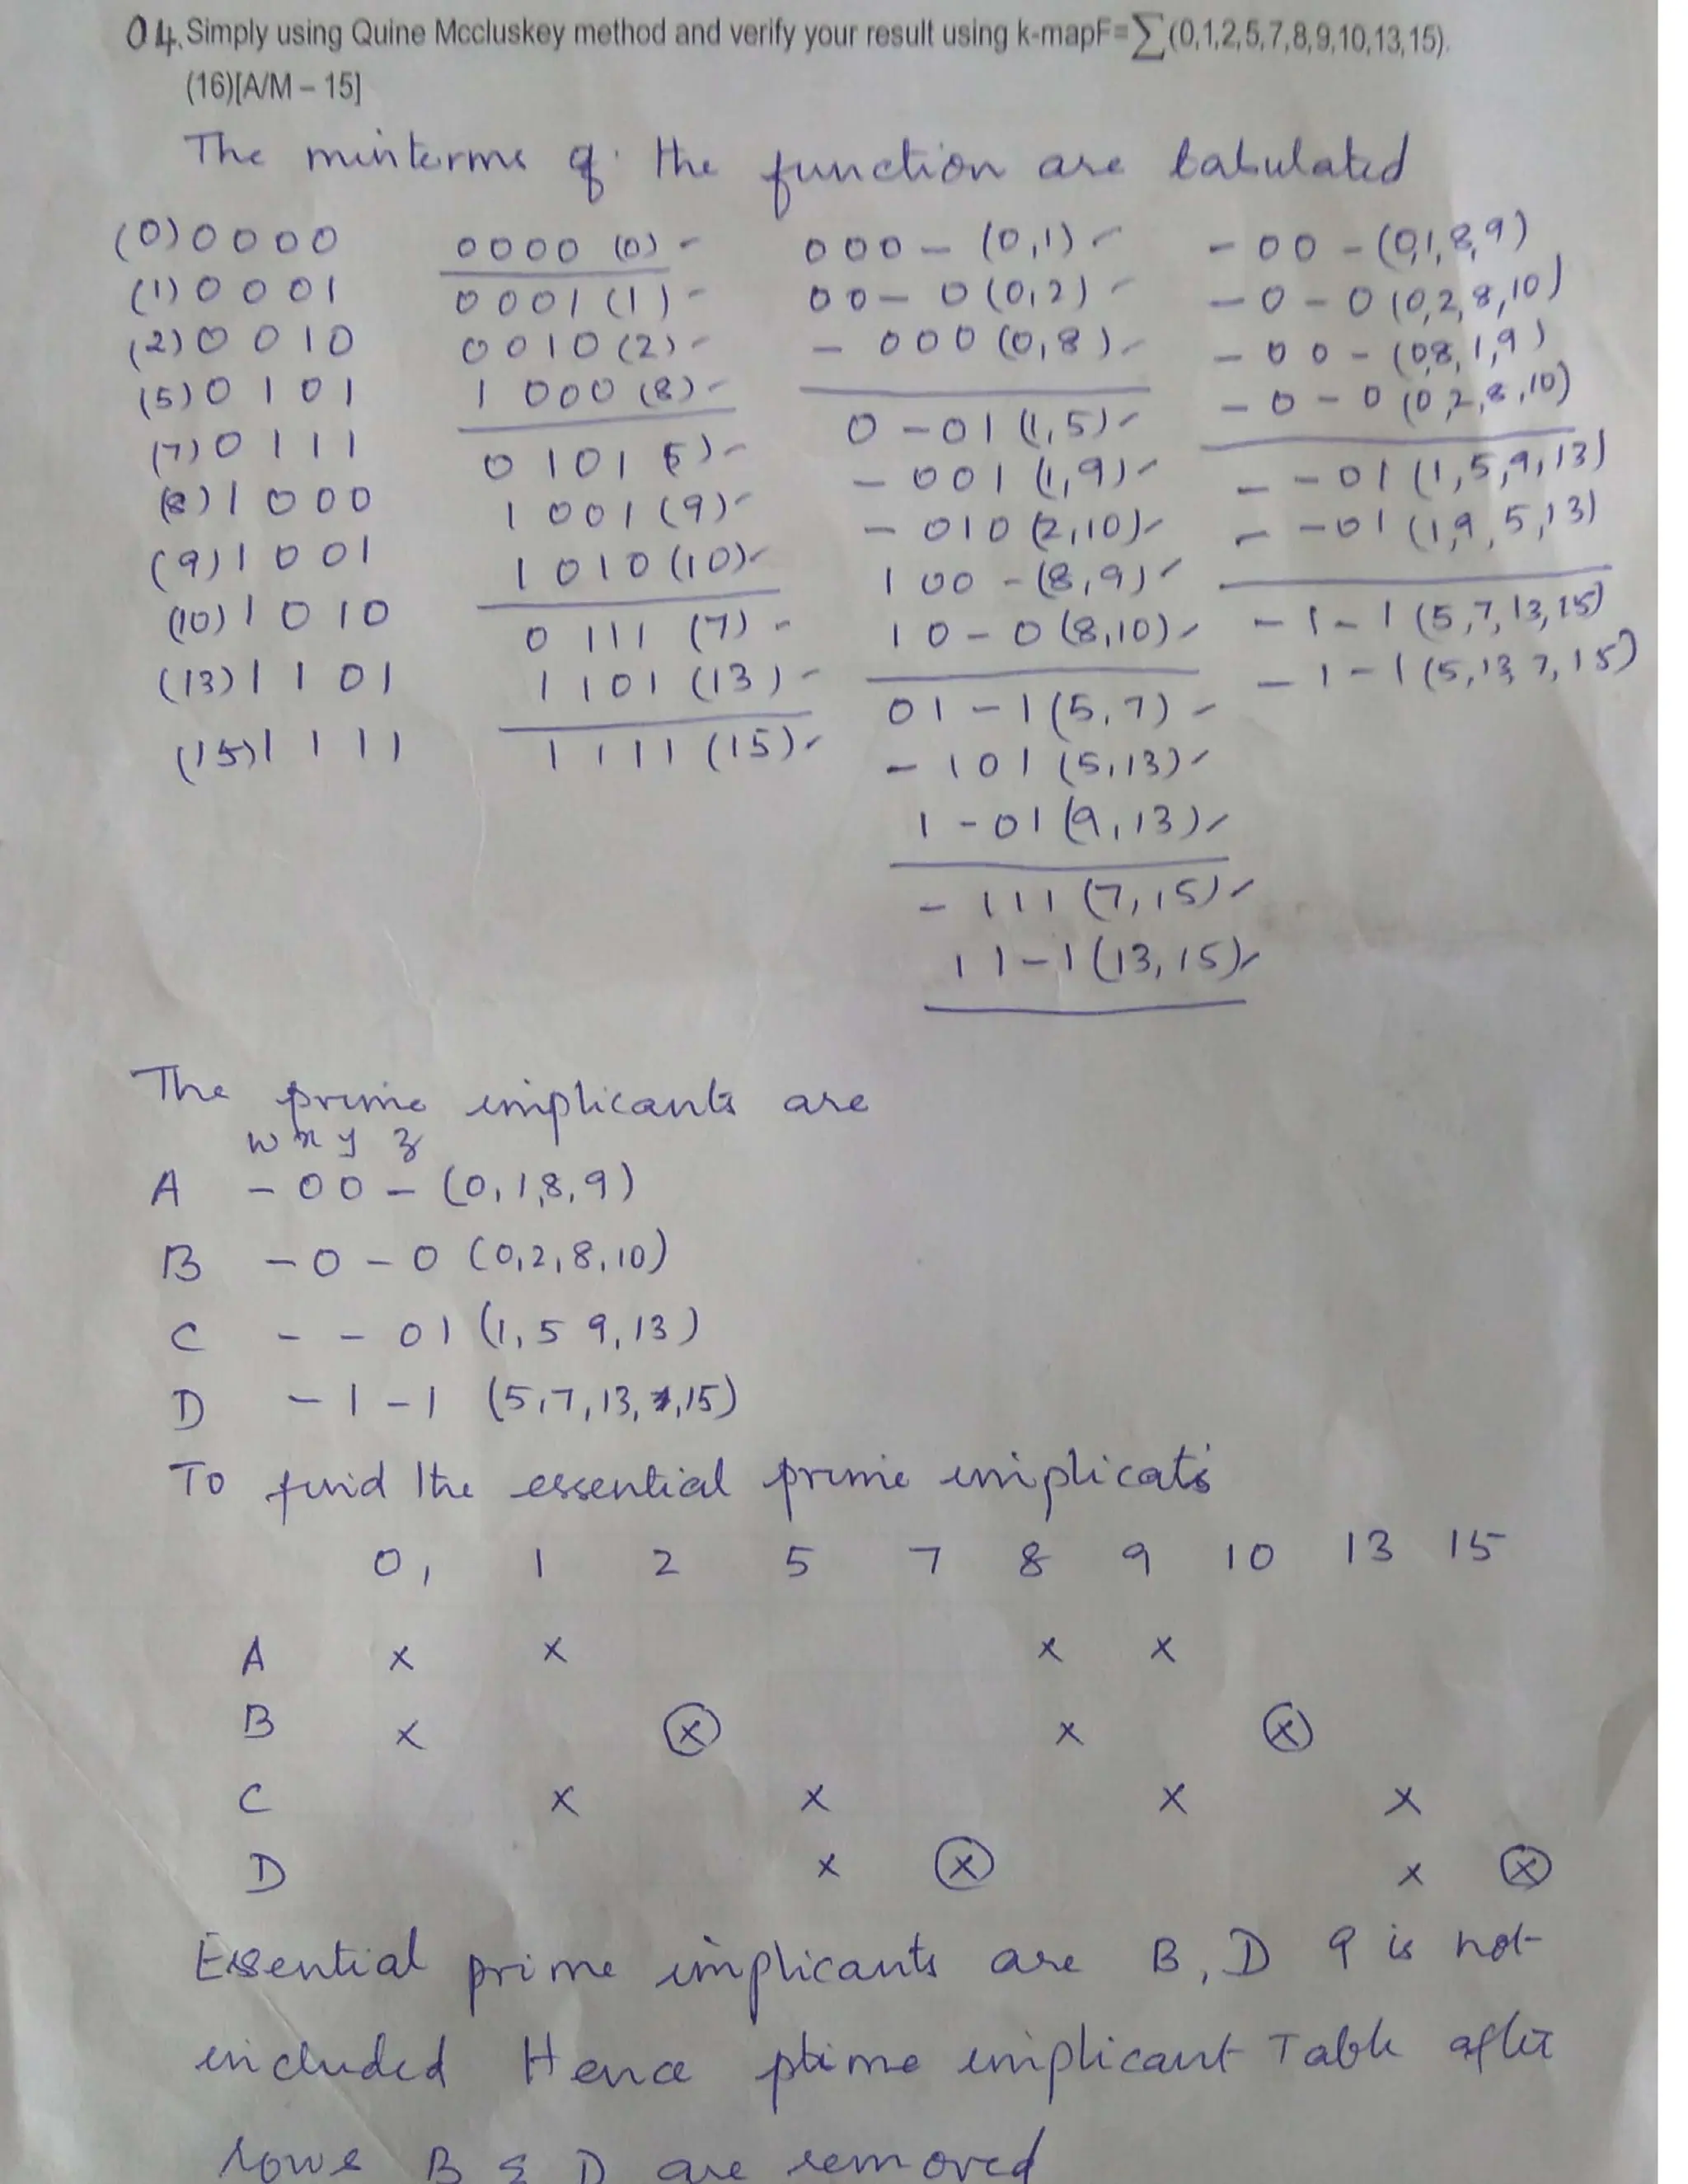 04. Simply using Quine Mccluskey method and verify your result using k-mapF=∑(0,1,2,5,7,8,9,10,13,15).
(16)[A/M – 15]
The minterms of the function are tabulated
(0) 0 0 0 0
(1) 0 0 0 1
(2) 0 0 1 0
(5) 0 1 0 1
(7) 0 1 1 1
(8) 1 0 0 0
(9) 1 0 0 1
(10) 1 0 1 0
(13) 1 1 0 1
(15) 1 1 1 1
0000 (0) ✓
0001 (1) ✓
0010 (2) ✓
1000 (8) ✓
0101 (5) ✓
1001 (9) ✓
1010 (10) ✓
0111 (7) ✓
1101 (13) ✓
1111 (15) ✓
000– (0,1) ✓
00–0 (0,2) ✓
–000 (0,8) ✓
0–01 (1,5) ✓
–001 (1,9) ✓
–010 (2,10) ✓
100– (8,9) ✓
10–0 (8,10) ✓
01–1 (5,7) ✓
–101 (5,13) ✓
1–01 (9,13) ✓
–111 (7,15) ✓
11–1 (13,15) ✓
–00– (0,1,8,9)
–0–0 (0,2,8,10)
–00– (0,8,1,9)
–0–0 (0,2,8,10)
––01 (1,5,9,13)
––01 (1,9,5,13)
–1–1 (5,7,13,15)
–1–1 (5,13,7,15)
The prime implicants are
w x y z
A –00– (0,1,8,9)
B –0–0 (0,2,8,10)
C ––01 (1,5 9,13)
D –1–1 (5,7,13,15)
To find the essential prime implicats
0, 1 2 5 7 8 9 10 13 15
A x x x x
B x ⓧ x ⓧ
C x x x x
D x ⓧ x ⓧ
Essential prime implicants are B, D 9 is not
included Hence prime implicant Table after
rows B & D are removed